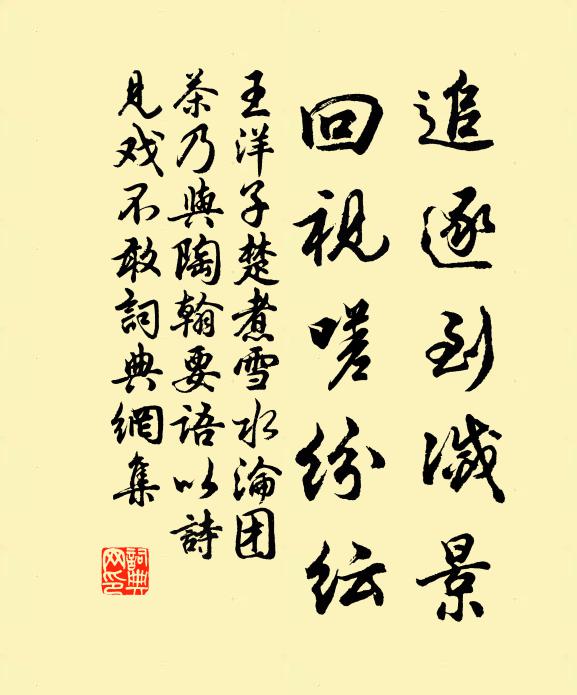 追逐到滅景
回視嗟紛紜
王洋子楚煮雪水淪团
茶乃與陶翰要語以詩
見戏不敢詞典網集
詞典网印